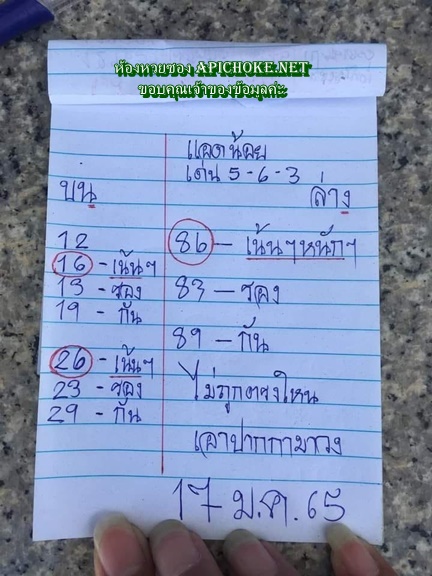 ห้องหายซอง APICHOKE.NET
ขอบคุณเจ้าของข้อมูลค่ะ
แอดน้อย
เด่น 5-6-3
บน
ล่าง
12
16 - เน้นๆ
13 - รอง
19 - กัน
26 - เน้นๆ
23 - รอง
29 - กัน
86 - เน้นๆหนักๆ
83 - รอง
89 - กัน
ไม่ถูกตรงไหน
เอาปากกามาวง
17 ม.ค. 65